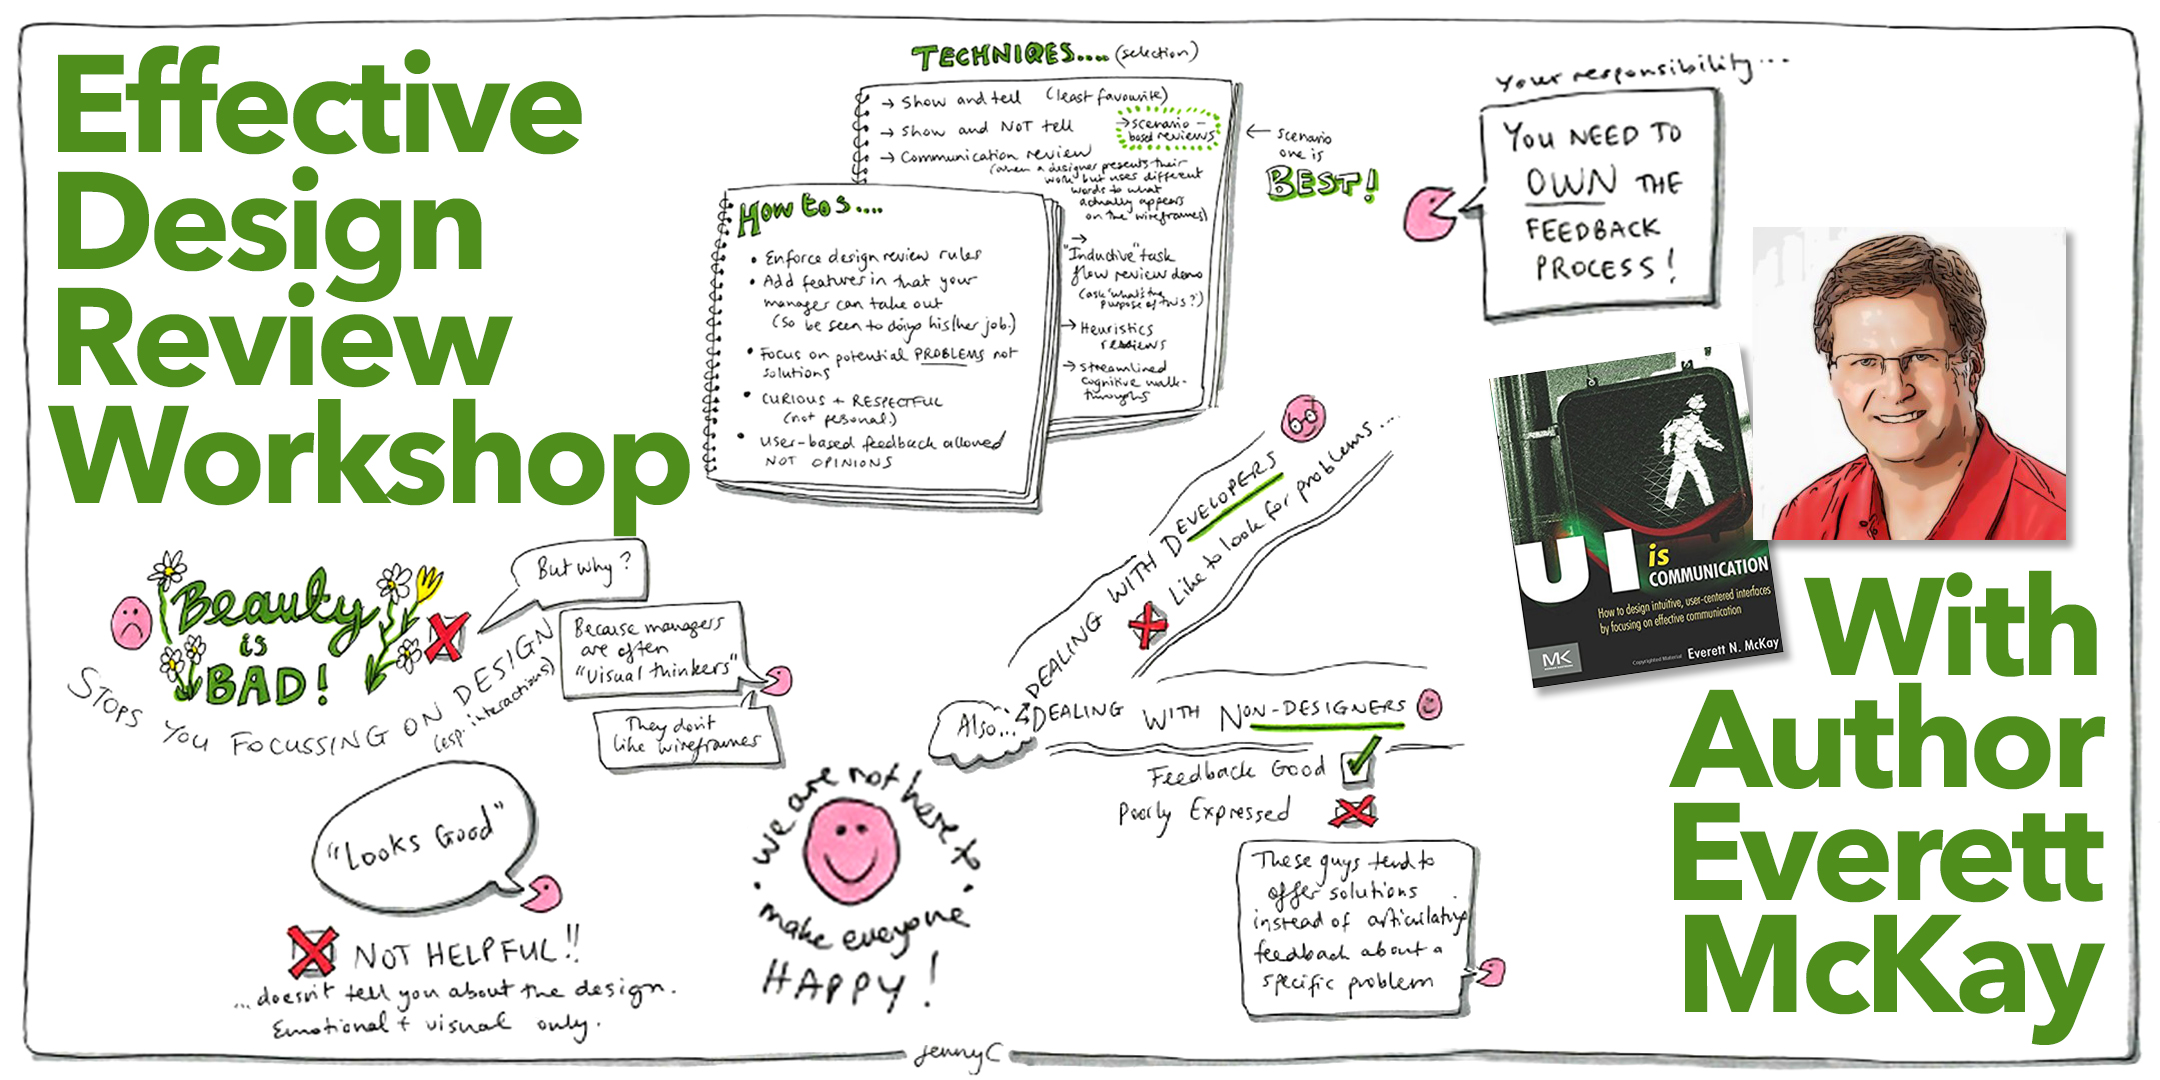 Effective
Design
Review
Workshop
TECHNIQES.... (selection)
→ Show and tell (least favourite)
→ Show and NOT tell
→ scenario-
based reviews
→ Communication review
(when a designer presents their
work but uses different
words to what
actually appears
on the wireframes)
→
"Inductive" task
flow review demo
(ask "what's the
purpose of this?")
→ Heuristics
reviews
→ streamlined
cognitive walk-
throughs
← scenario
one is
BEST!
How tos....
• Enforce design review rules
• Add features in that your
manager can take out
(so be seen to doing his/her job.)
• Focus on potential PROBLEMS not
solutions
• CURIOUS + RESPECTFUL
(not pesonal.)
• User-based feedback allowed
NOT OPINIONS
Your responsibility...
YOU NEED TO
OWN THE
FEEDBACK
PROCESS!
UI is
COMMUNICATION
How to design intuitive, user-centered interfaces
by focusing on effective communication
MK
Copyrighted Material
Everett N. McKay
With
Author
Everett
McKay
Beauty
is
BAD!
STOPS YOU FOCUSSING ON DESIGN
(esp. interactions)
But why?
Because managers
are often
"Visual thinkers"
They don't
like wireframes
"Looks Good"
NOT HELPFUL!!
...doesn't tell you about the design.
Emotional + visual only.
we are not here to
make everyone
HAPPY!
Also...
DEALING WITH DEVELOPERS
Like to look for problems...
DEALING WITH NON-DESIGNERS
Feedback Good
Poorly Expressed
These guys tend to
offer solutions
instead of articulating
feedback about a
specific problem
jennyC